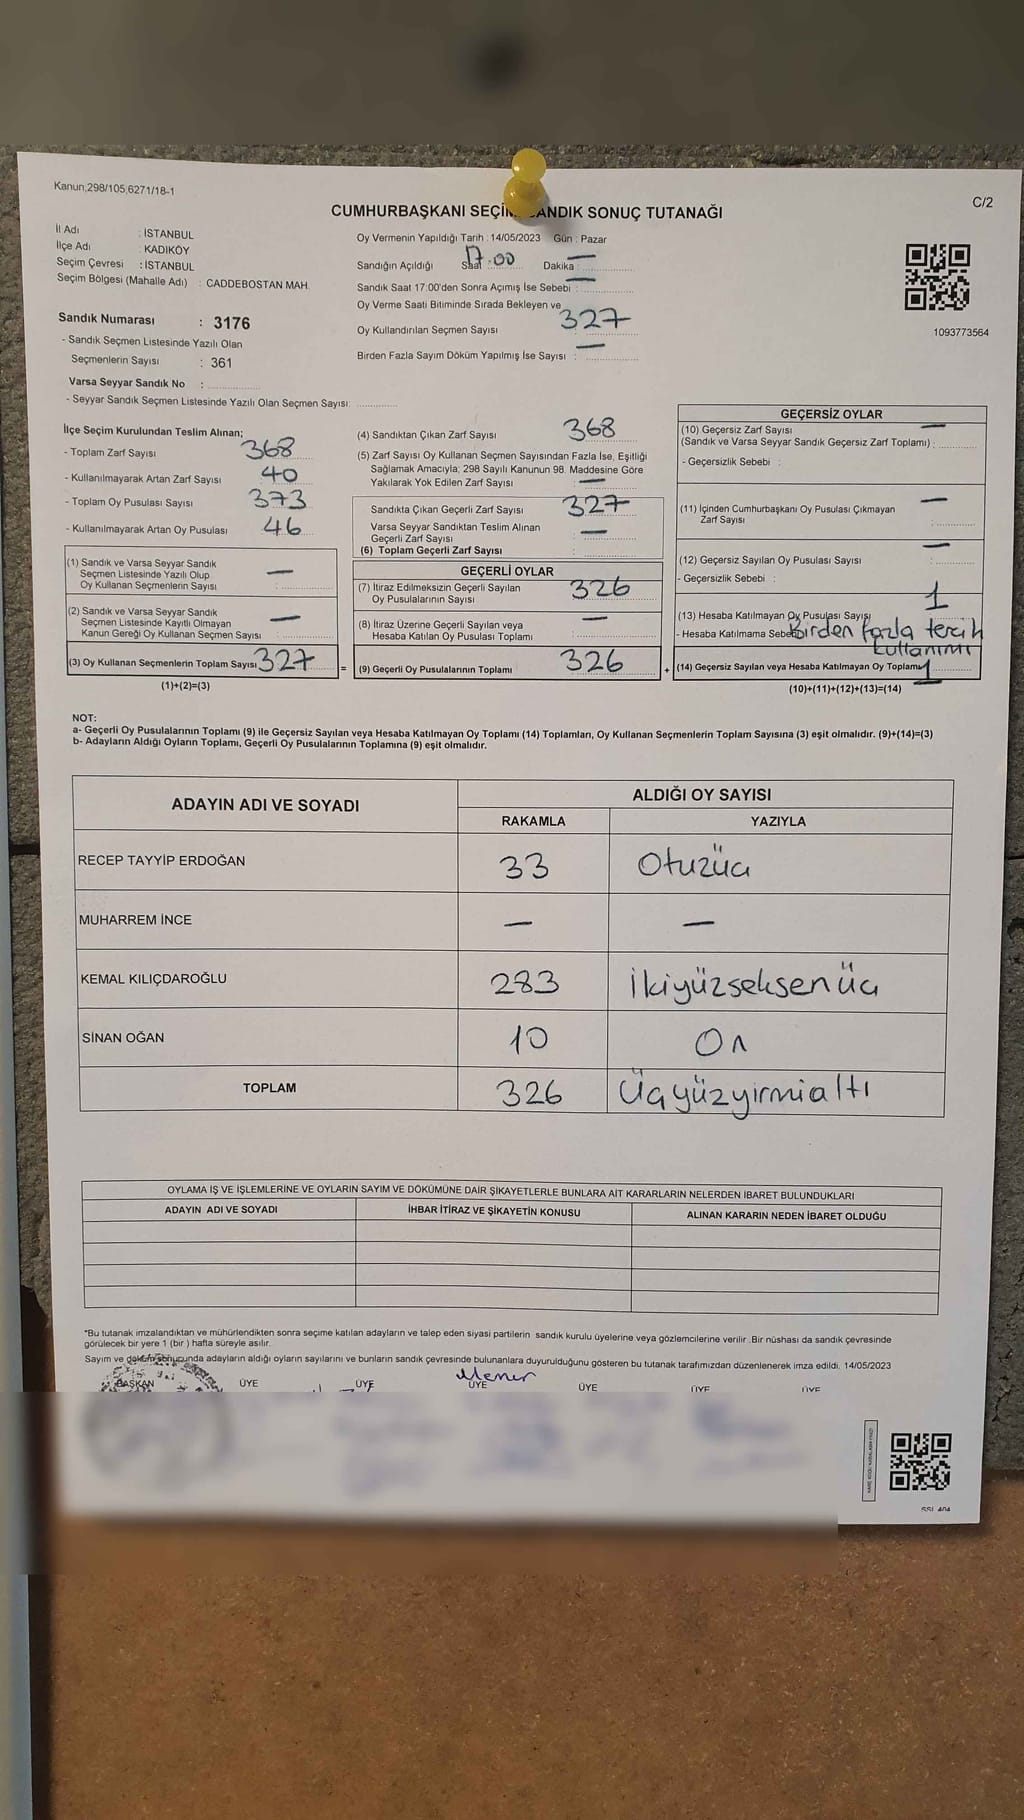 Kanun;298/105;6271/18-1
C/2
CUMHURBAŞKANI SEÇİM SANDIK SONUÇ TUTANAĞI
İl Adı : İSTANBUL
İlçe Adı : KADIKÖY
Seçim Çevresi : İSTANBUL
Seçim Bölgesi (Mahalle Adı) : CADDEBOSTAN MAH.
Sandık Numarası : 3176
- Sandık Seçmen Listesinde Yazılı Olan
Seçmenlerin Sayısı : 361
Varsa Seyyar Sandık No :
- Seyyar Sandık Seçmen Listesinde Yazılı Olan Seçmen Sayısı:
Oy Vermenin Yapıldığı Tarih : 14/05/2023 Gün : Pazar
Sandığın Açıldığı Saat 17.00 Dakika —
Sandık Saat 17:00'den Sonra Açımış İse Sebebi : —
Oy Verme Saati Bitiminde Sırada Bekleyen ve
Oy Kullandırılan Seçmen Sayısı 327
Birden Fazla Sayım Döküm Yapılmış İse Sayısı : —
1093773564
İlçe Seçim Kurulundan Teslim Alınan;
- Toplam Zarf Sayısı 368
- Kullanılmayarak Artan Zarf Sayısı 40
- Toplam Oy Pusulası Sayısı 373
- Kullanılmayarak Artan Oy Pusulası 46
(1) Sandık ve Varsa Seyyar Sandık
Seçmen Listesinde Yazılı Olup
Oy Kullanan Seçmenlerin Sayısı : —
(2) Sandık ve Varsa Seyyar Sandık
Seçmen Listesinde Kayıtlı Olmayan
Kanun Gereği Oy Kullanan Seçmen Sayısı —
(3) Oy Kullanan Seçmenlerin Toplam Sayısı 327 =
(1)+(2)=(3)
(4) Sandıktan Çıkan Zarf Sayısı 368
(5) Zarf Sayısı Oy Kullanan Seçmen Sayısından Fazla İse, Eşitliği
Sağlamak Amacıyla; 298 Sayılı Kanunun 98. Maddesine Göre
Yakılarak Yok Edilen Zarf Sayısı —
Sandıkta Çıkan Geçerli Zarf Sayısı 327
Varsa Seyyar Sandıktan Teslim Alınan
Geçerli Zarf Sayısı : —
(6) Toplam Geçerli Zarf Sayısı :
GEÇERLİ OYLAR
(7) İtiraz Edilmeksizin Geçerli Sayılan
Oy Pusulalarının Sayısı 326
(8) İtiraz Üzerine Geçerli Sayılan veya
Hesaba Katılan Oy Pusulası Toplamı : —
(9) Geçerli Oy Pusulalarının Toplamı 326 +
GEÇERSİZ OYLAR
(10) Geçersiz Zarf Sayısı —
(Sandık ve Varsa Seyyar Sandık Geçersiz Zarf Toplamı) :
- Geçersizlik Sebebi :
(11) İçinden Cumhurbaşkanı Oy Pusulası Çıkmayan —
Zarf Sayısı :
(12) Geçersiz Sayılan Oy Pusulası Sayısı : —
- Geçersizlik Sebebi :
(13) Hesaba Katılmayan Oy Pusulası Sayısı 1
- Hesaba Katılmama Sebebi Birden fazla tercih
kullanımı
(14) Geçersiz Sayılan veya Hesaba Katılmayan Oy Toplamı 1
(10)+(11)+(12)+(13)=(14)
NOT:
a- Geçerli Oy Pusulalarının Toplamı (9) ile Geçersiz Sayılan veya Hesaba Katılmayan Oy Toplamı (14) Toplamları, Oy Kullanan Seçmenlerin Toplam Sayısına (3) eşit olmalıdır. (9)+(14)=(3)
b- Adayların Aldığı Oyların Toplamı, Geçerli Oy Pusulalarının Toplamına (9) eşit olmalıdır.
ADAYIN ADI VE SOYADI
ALDIĞI OY SAYISI
RAKAMLA YAZIYLA
RECEP TAYYİP ERDOĞAN 33 Otuzüç
MUHARREM İNCE — —
KEMAL KILIÇDAROĞLU 283 İkiyüzseksenüç
SİNAN OĞAN 10 On
TOPLAM 326 Üçyüzyirmialtı
OYLAMA İŞ VE İŞLEMLERİNE VE OYLARIN SAYIM VE DÖKÜMÜNE DAİR ŞİKAYETLERLE BUNLARA AİT KARARLARIN NELERDEN İBARET BULUNDUKLARI
ADAYIN ADI VE SOYADI İHBAR İTİRAZ VE ŞİKAYETİN KONUSU ALINAN KARARIN NEDEN İBARET OLDUĞU
*Bu tutanak imzalandıktan ve mühürlendikten sonra seçime katılan adayların ve talep eden siyasi partilerin sandık kurulu üyelerine veya gözlemcilerine verilir .Bir nüshası da sandık çevresinde
görülecek bir yere 1 (bir ) hafta süreyle asılır.
Sayım ve döküm sonucunda adayların aldığı oyların sayılarını ve bunların sandık çevresinde bulunanlara duyurulduğunu gösteren bu tutanak tarafımızdan düzenlenerek imza edildi. 14/05/2023
BAŞKAN ÜYE ÜYE ÜYE ÜYE ÜYE ÜYE